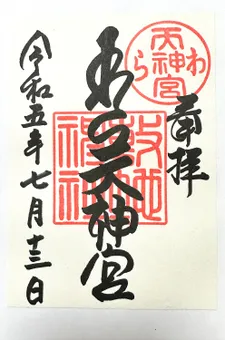 わら
天神宮
奉拝
わら天神宮
敷地
神社
令和五年七月十三日